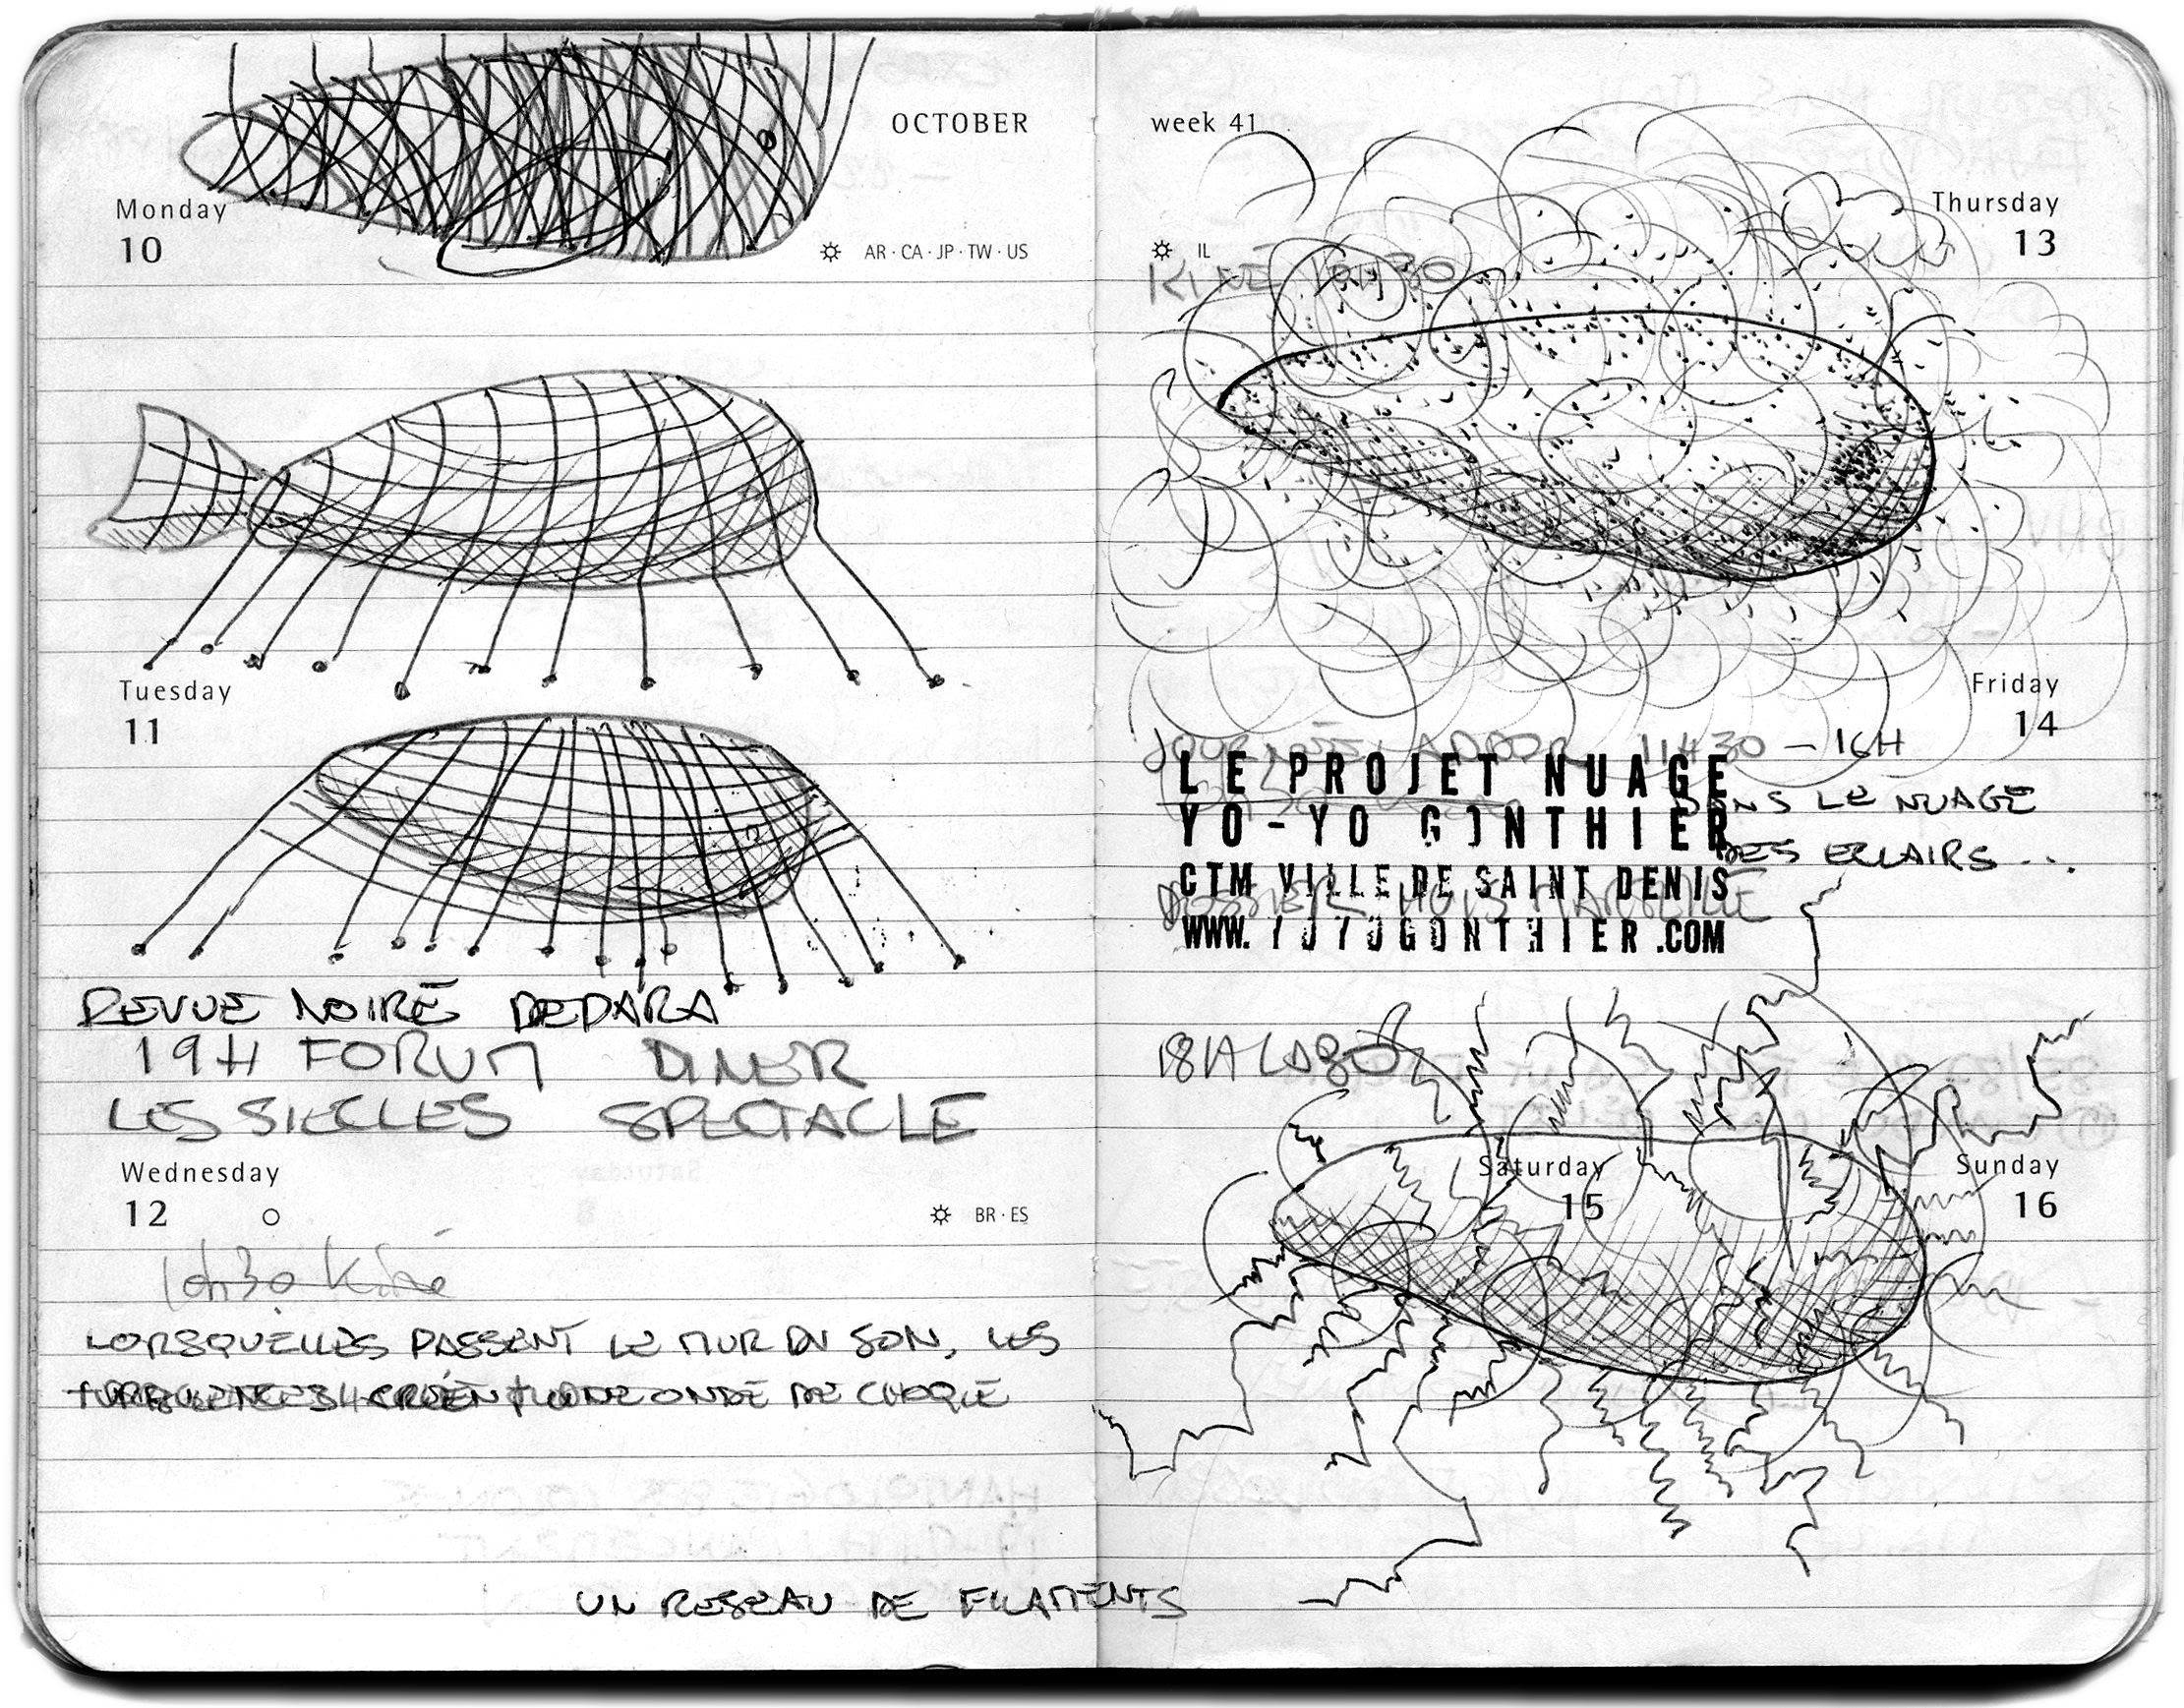 OCTOBER
Monday
10
AR · CA · JP · TW · US
Tuesday
11
REVUE NOIRE DEDARA
19H FORUM DINER
LES SIECLES SPECTACLE
Wednesday
12
BR · ES
10h30 Kiné
LORSQU'ELLES PASSENT LE MUR DU SON, LES
ONDE DE CHOQUE
UN RESEAU DE FILAMENTS
week 41
Thursday
13
IL
KINE 10H30
Friday
14
11H30 – 16H
LE PROJET NUAGE
DANS LE NUAGE
YO-YO GONTHIER
DES ECLAIRS ...
CTM VILLE DE SAINT DENIS
WWW.YOYOGONTHIER.COM
18H
Saturday
15
Sunday
16